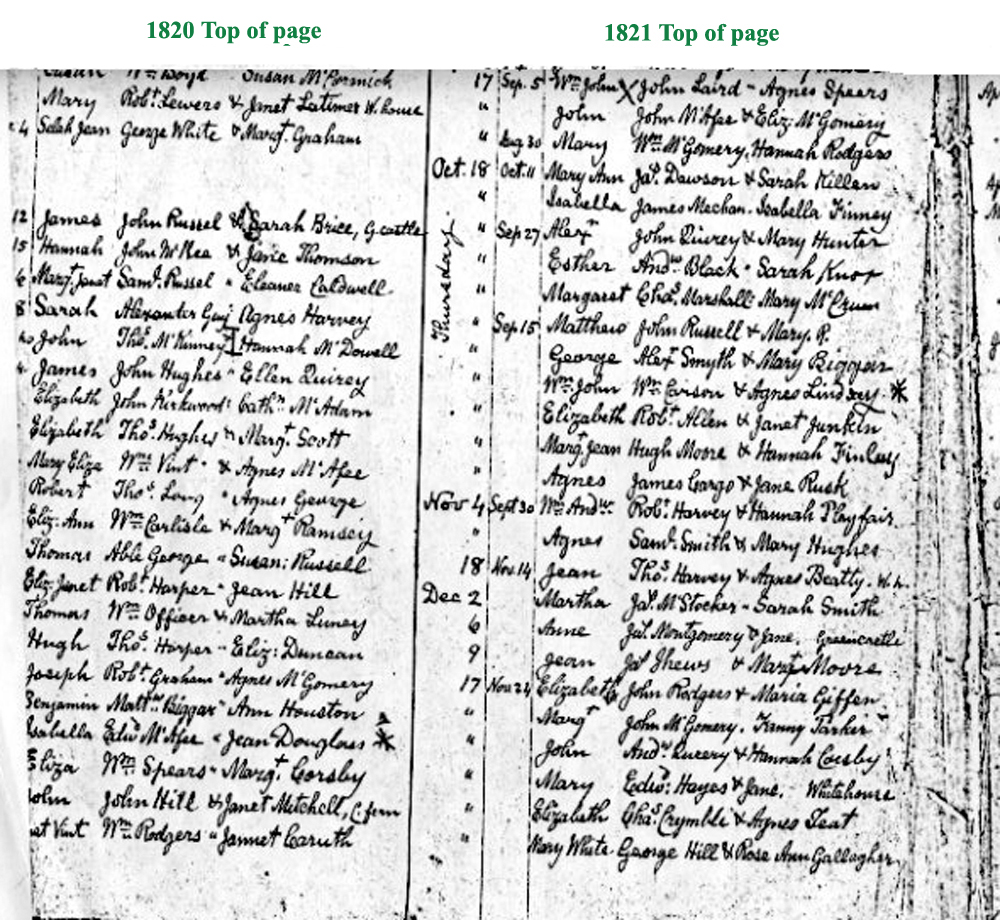 1820 Top of page
1821 Top of page
Susan Wm Boyd Susan McCormick
Mary Robt. Lewers & Jenet Latimer W. house
4 Selah Jean George White & Margt. Graham
12 James John Russel & Sarah Brice, G. castle
15 Hannah John McKee & Janie Thomson
6 Margt. Janet Saml. Russel " Eleaner Caldwell
8 Sarah Alexander Guy Agnes Harvey
John Thos. McKinney Hannah McDowell
James John Hughes " Ellen Quirey
Elizabeth John Kirkwood Cathn McAdam
Elizabeth Thos. Hughes & Margt. Scott
Mary Eliza Wm Vint & Agnes McAfee
Robert Thos. Long " Agnes George
Eliz. Ann Wm Carlisle & Margt Ramsey
Thomas Able George " Susan: Russell
Eliz. Janet Robt Harper " Jean Hill
Thomas Wm Officer & Martha Luney
Hugh Thos. Harper " Eliz: Duncan
Joseph Robt. Graham " Agnes McGomery
Benjamin Mattw Biggar " Ann Houston
Isabella Edwd McAfee " Jean Douglass *
Eliza Wm Spears " Margt Corsby
John John Hill & Janet Mitchell,
Vint Wm Rodgers " Jannet Caruth
17 Sep. 5 Wm John X John Laird " Agnes Spears
" John John McAfee & Eliz: McGomery
" Aug 30 Mary Wm McGomery, Hannah Rodgers
Oct. 18 Oct. 11 Mary Ann Jas. Dawson & Sarah Killen
" Isabella James Mechan. Isabella Finney
Thursday
" Sep 27 Alexr John Quirey & Mary Hunter
" Esther Andw Black " Sarah Knox
" Margaret Chas. Marshall Mary McCrum
" Sep 15 Matthew John Russell & Mary. R.
" George Alexr Smyth & Mary Biggar
" Wm John Wm Carson & Agnes Lindsay *
" Elizabeth Robt. Allen & Janet Junkin
" Margt. Jean Hugh Moore & Hannah Finlay
" Agnes James Cargo & Jane Rusk
Nov 4 Sept 30 Wm Andw. Robt. Harvey & Hannah Playfair
" Agnes Saml. Smith & Mary Hughes
18 Nov. 14 Jean Thos. Harvey & Agnes Beatty. W. h.
Dec 2 Martha Jas. McStocker " Sarah Smith
6 Anne Jas. Montgomery & Jane. Greencastle
9 Jean Jas. Shews & Margt Moore
17 Nov 24 Elizabeth John Rodgers & Maria Giffen
" Margt John McGomery. Fanny Parker
" John Andw. Queery & Hannah Cosby
" Mary Edwd. Hayes & Jane. Whitehouse
" Elizabeth Chas. Crymble & Agnes Teat
" Mary White George Hill & Rose Ann Gallagher